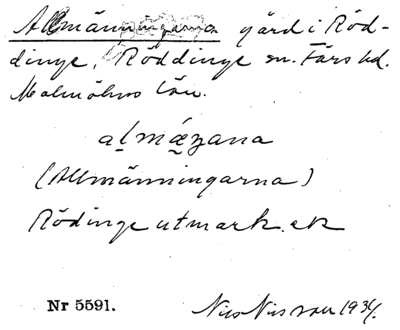 Allmänningarna gärd i Röd-
dinge, Röddinge sn. Färs hd.
Malmöhus län.
almäŋana
(Allmänningarna)
Rödinge utmark. ek
Nr 5591.
Nils Nilsson 1934.